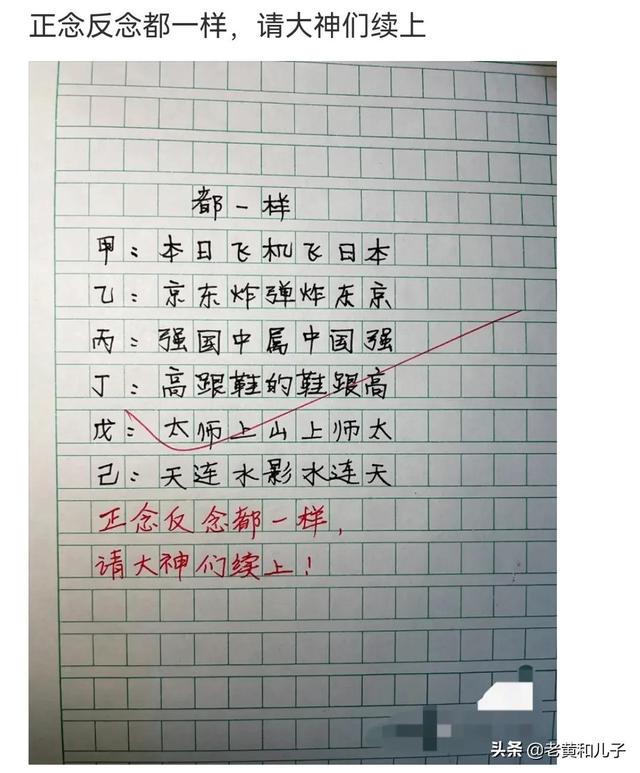 正念反念都一样，请大神们续上
都一样
甲：本日飞机飞日本
乙：京东炸弹炸东京
丙：强国中属中国强
丁：高跟鞋的鞋跟高
戊：太师上山上师太
己：天连水影水连天
正念反念都一样，
请大神们续上！
头条 @老黄和儿子